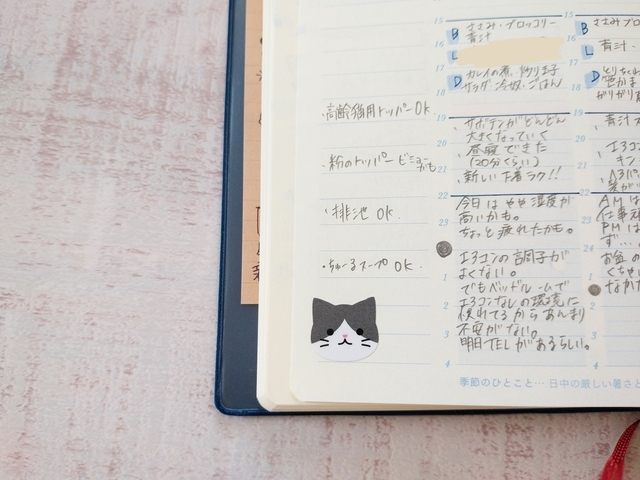 ・高齢猫用トッパーOK
・粉のトッパービミョーかも
・排泄 OK.
・ちゅーるスープ OK.
15
16
17
18
19
20
21
22
23
24
1
2
3
4
B ささみ・ブロッコリー
青汁
L
D カレイの煮・炒り玉子
サラダ 冷奴・ごはん
サボテンがどんどん
大きくなっていく
昼寝できた
(20分くらい)
新しい下着ラク!!
今日はやや湿度が
高いかも。
ちょっと疲れたかも。
エアコンの調子が
よくない。
でもベッドルームで
エアコンなしの環境に
慣れてるからあんまり
不安がない。
明日TELがあるらしい。
季節のひとこと… 日中の厳しい暑さと
15
16
17
18
19
20
21
22
23
24
1
2
3
4
B ささみブロ
L 青汁・
D
青汁ス
エアコン
AMは
仕事
PMは
ず…
お金の